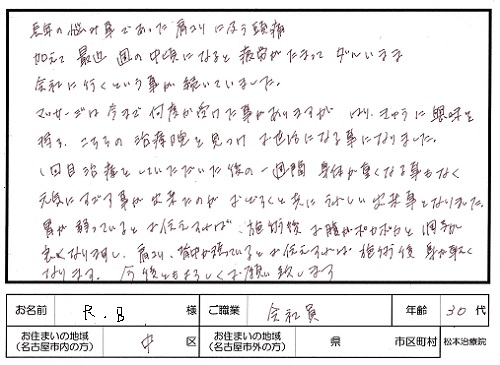 長年の悩み事であった肩コリに伴う頭痛
加えて最近 週の中頃になると疲労がたまってダルいまま
会社に行くという事が続いていました。
マッサージは今まで何度か受けた事がありますが はり、きゅうに興味を
持ち、こちらの治療院を見つけ お世話になる事になりました。
1回目治療をしていただいた後の一週間 身体が重くなる事もなく
元気にすごす事が出来たのが おどろくと共に うれしい出来事となりました。
胃が弱っているとお伝えすれば、施術後 お腹がポカポカと 調子が
良くなりますし、肩コリ、背中が張っているとお伝えすれば 施術後 身が軽く
なります。今後ともよろしくお願い致します
お名前 R.B 様 ご職業 会社員 年齢 30代
お住まいの地域(名古屋市内の方) 中 区 お住まいの地域(名古屋市外の方) 県 市区町村 松本治療院